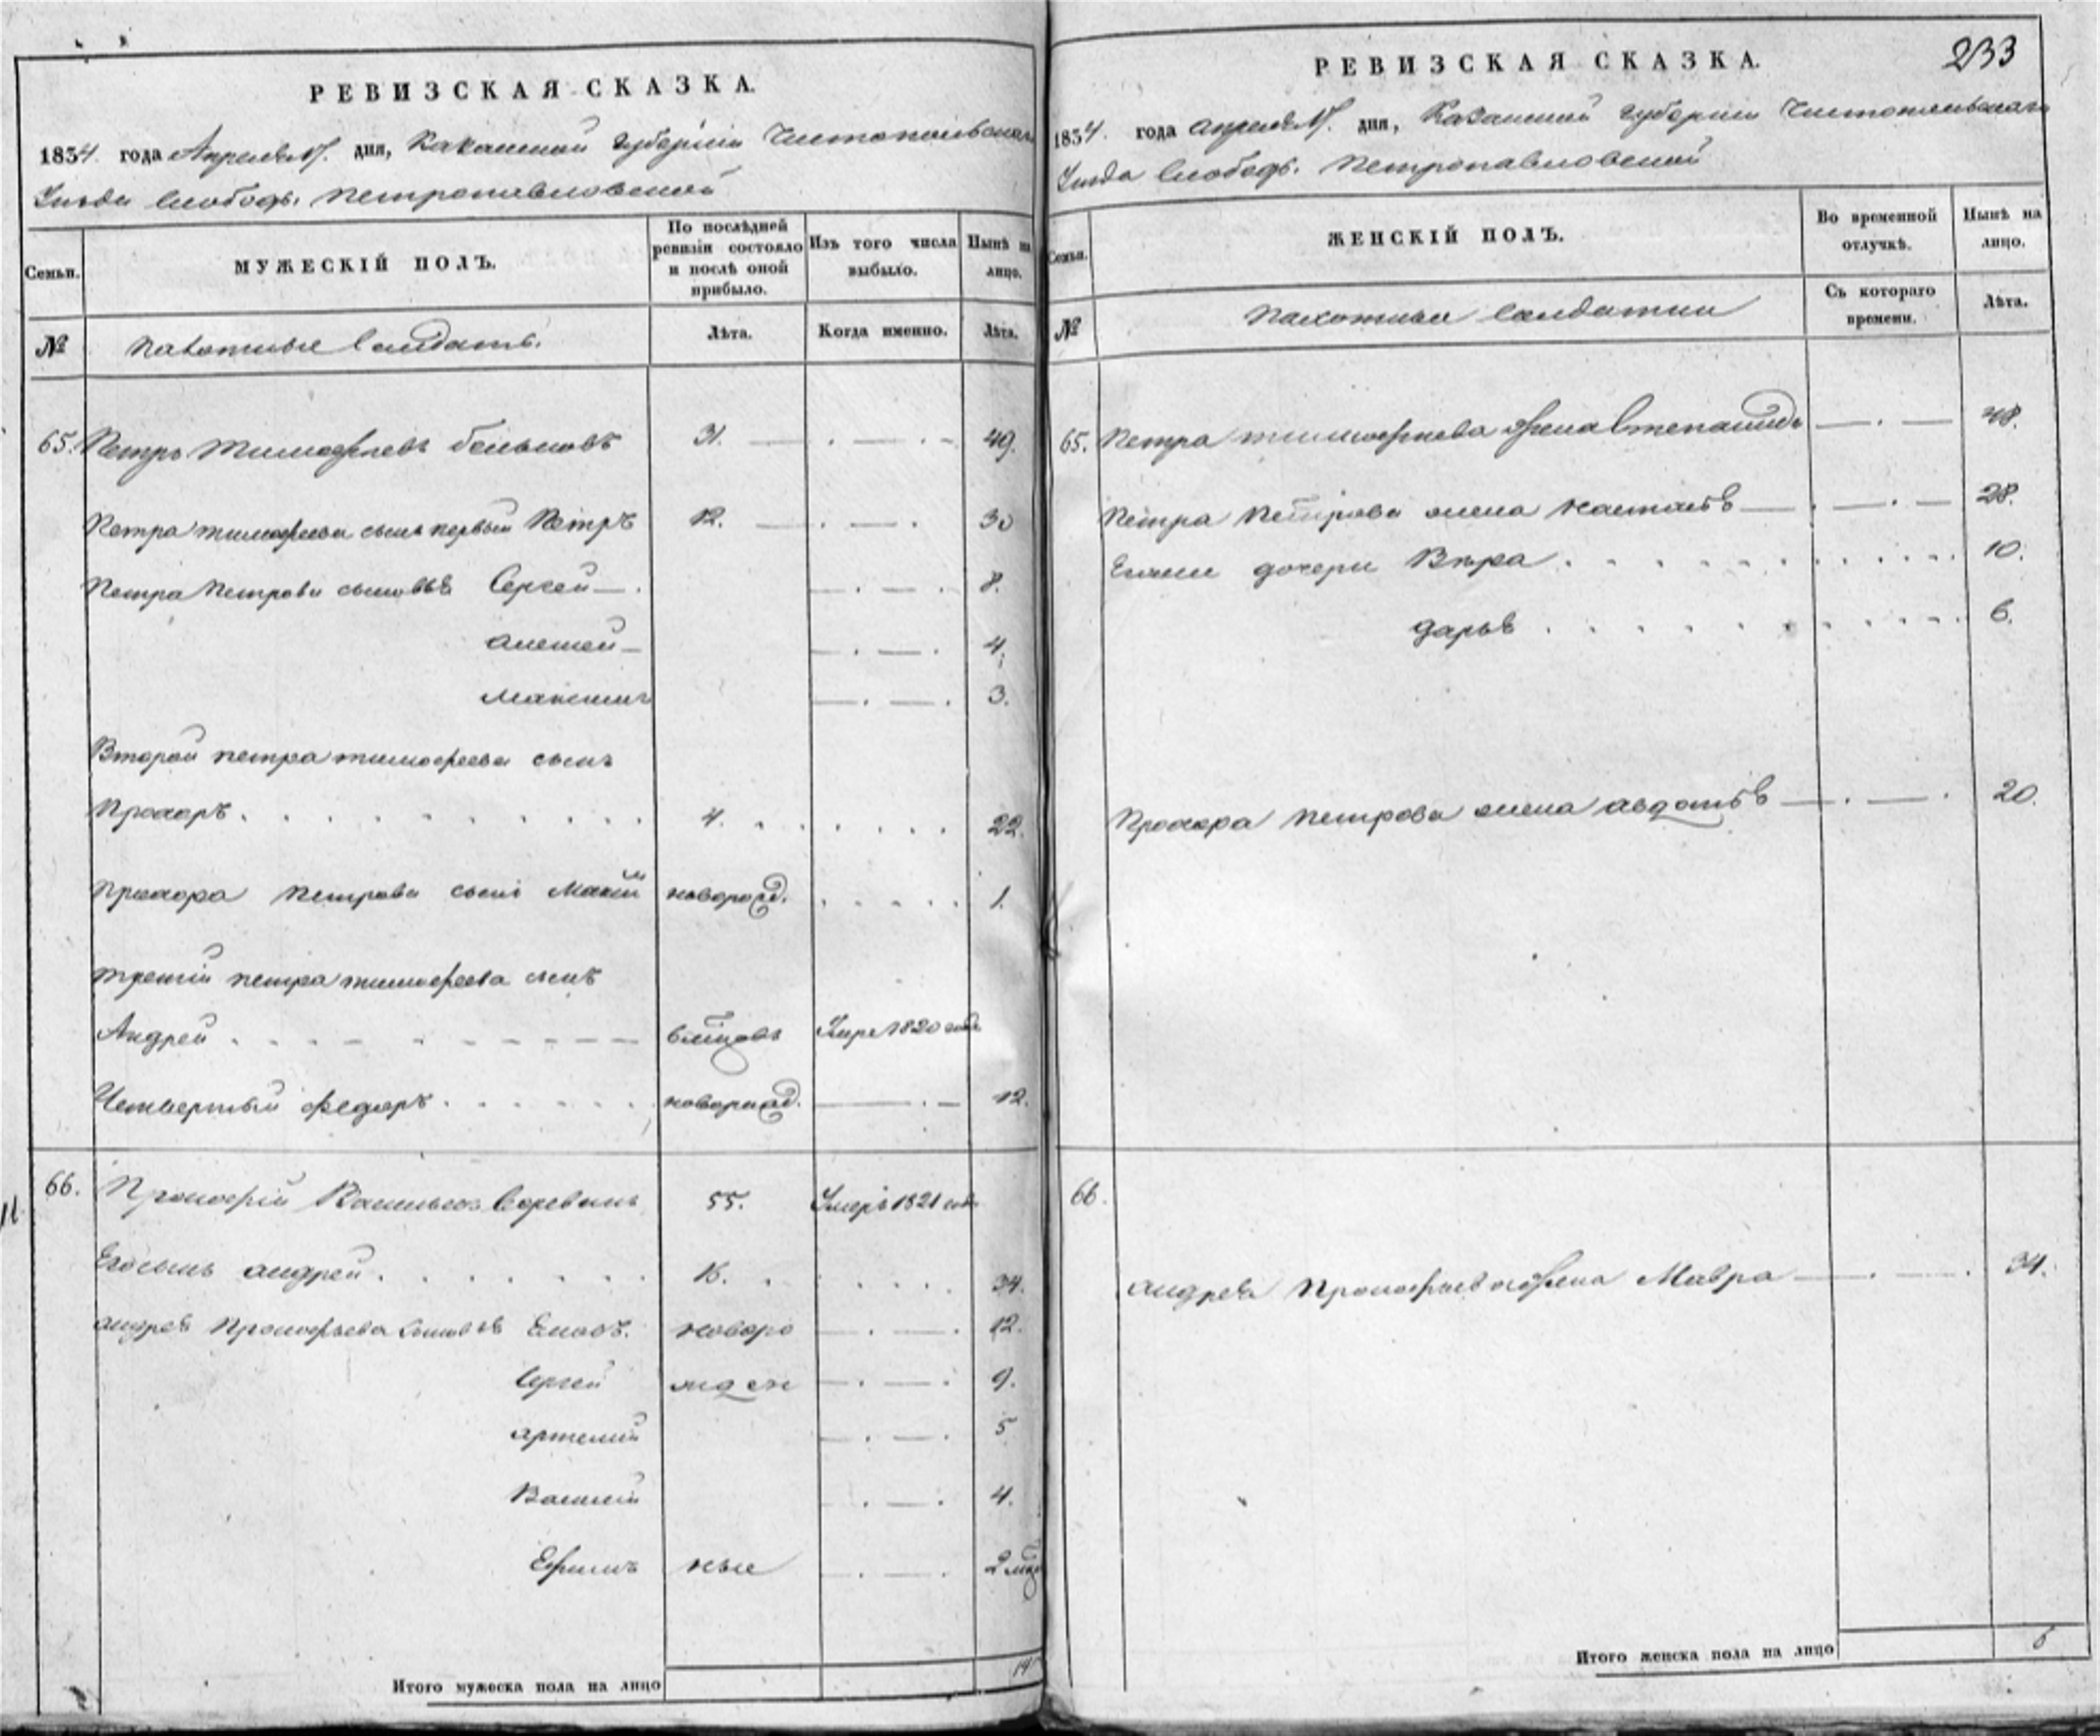 РЕВИЗСКАЯ СКАЗКА.
1834 года Апреля дня, Казанской губернiи Чистопольскаго
Уезда Слободы Петропавловской
Семьи.
МУЖЕСКІЙ ПОЛЪ.
По послѣдней ревизіи состояло и послѣ оной прибыло.
Изъ того числа выбыло.
Нынѣ на лицо.
№
Пахотные Солдаты.
Лѣта.
Когда именно.
Лѣта.
65. Петръ Тимофеевъ 31. 49.
Петра Тимофеева сынъ первый Петръ 12. 30
Петра Петрова сыновья Сергей 8.
Алексей 4.
Максимъ 3.
Второй петра тимофеева сынъ
Прохоръ 4. 22.
Прохора Петрова сынъ новорожд. 1.
третiй петра тимофеева сынъ
Андрей 1820 года
Четвертый Федоръ новорожд. 12.
66. Прокофiй Васильевъ 55. Умеръ 1821 года
Его сынъ андрей 16. 34.
андрея Прокофьева сыновья новоро 12.
Сергей жден 9.
артемий 5
Василий 4.
Ефимъ ные 2
Итого мужеска пола на лицо 14
РЕВИЗСКАЯ СКАЗКА.
233
1834 года апреля дня, Казанской губернiи Чистопольскаго
Уезда Слободы Петропавловской
Семьи.
ЖЕНСКІЙ ПОЛЪ.
Во временной отлучкѣ.
Нынѣ на лицо.
№
Пахотные солдатки
Съ котораго времени.
Лѣта.
65. Петра тимофеева жена Степанида 48.
Петра Петрова жена настасья 28.
дочери Вѣра 10.
дарья 6.
Прохора Петрова жена авдотья 20.
66.
андрея Прокофьева жена Мавра 34.
Итого женска пола на лицо 6